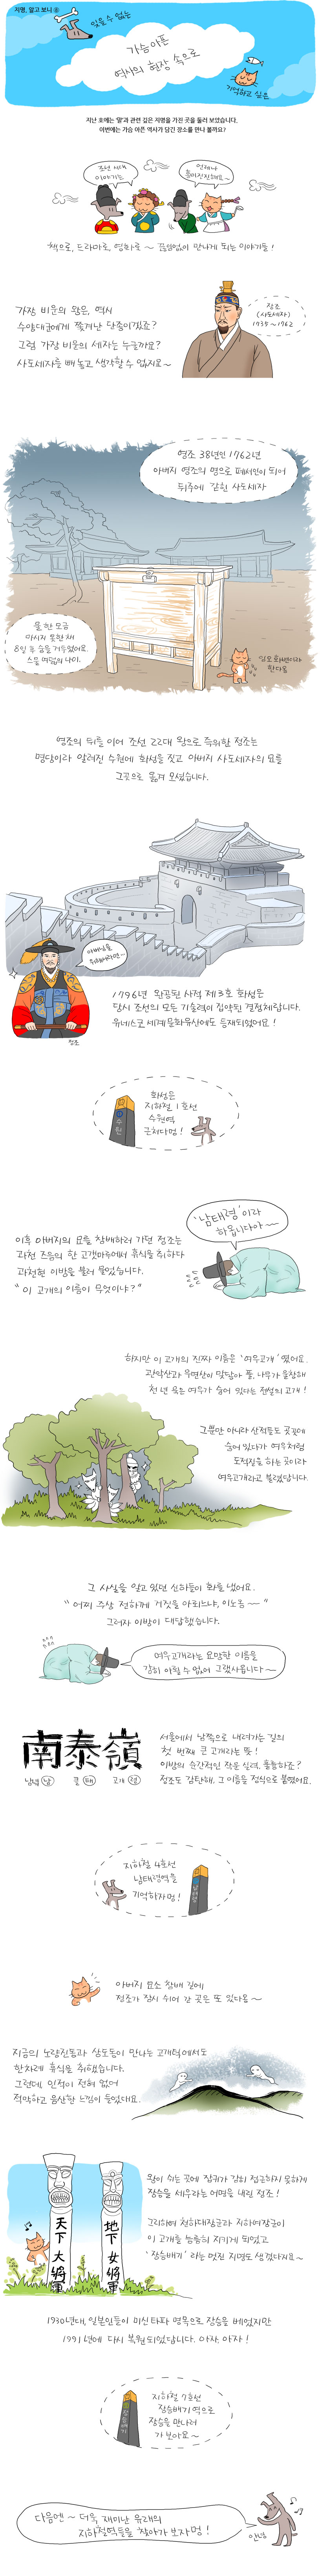 지명, 알고 보니 ⑧
잊을 수 없는
가슴아픈
역사의 현장 속으로
기억하고 싶은
지난 호에는 '말'과 관련 깊은 지명을 가진 곳을 둘러 보았습니다.
이번에는 가슴 아픈 역사가 담긴 장소를 만나 볼까요?
조선 시대
이야기는
언제나
흥미진진해요~
책으로, 드라마로, 영화로 ~ 끊임없이 만나게 되는 이야기들!
가장 비운의 왕은, 역시
수양대군에게 쫓겨난 단종이겠죠?
그럼 가장 비운의 세자는 누굴까요?
사도세자를 빼놓고 생각할 수 없지요~
장조
(사도세자)
1735~1762
영조 38년인 1762년
아버지 영조의 명으로 폐서인이 되어
뒤주에 갇힌 사도세자
물 한 모금
마시지 못한 채
8일 후 숨을 거두었어요.
스물 여덟의 나이.
영조의 뒤를 이어 조선 22대 왕으로 즉위한 정조는
명당이라 알려진 수원에 화성을 짓고 아버지 사도세자의 묘를
그곳으로 옮겨 모셨습니다.
아버님을
위해서라면…
정조
1796년 완공된 사적 제3호 화성은
당시 조선의 모든 기술력이 집약된 결정체랍니다.
유네스코 세계문화유산에도 등재되었어요!
화성은
지하철 1호선
수원역
근처다멍!
수원
이후 아버지의 묘를 참배하러 가던 정조는
과천 즈음의 한 고갯마루에서 휴식을 취하다
과천현 이방을 불러 물었습니다.
"이 고개의 이름이 무엇이냐?"
'남태령'이라
하옵니다아~~
하지만 이 고개의 진짜 이름은 '여우고개'였어요.
관악산과 우면산이 맞닿아 풀, 나무가 울창해
천 년 묵은 여우가 숨어 있다는 전설의 고개!
그뿐만 아니라 산적들도 곳곳에
숨어 있다가 여우처럼
도적질을 하는 곳이라
여우고개라고 불렸답니다.
그 사실을 알고 있던 신하들이 화를 냈어요.
"어찌 주상 전하께 거짓을 아뢰느냐, 이노옴~~"
그러자 이방이 대답했습니다.
여우고개라는 요망한 이름을
감히 아뢸 수 없어 그랬사옵니다~~
南泰嶺
남녘 남 클 태 고개 령
서울에서 남쪽으로 내려가는 길의
첫 번째 큰 고개라는 뜻!
이방의 순간적인 작문 실력, 훌륭하죠?
정조도 감탄해, 그 이름을 정식으로 붙였어요.
지하철 4호선
남태령역을
기억하자멍!
남태령
아버지 묘소 참배 길에
정조가 잠시 쉬어 간 곳은 또 있다옹~
지금의 노량진동과 상도동이 만나는 고개턱에서도
한차례 휴식을 취했습니다.
그런데, 인적이 전혀 없어
적막하고 음산한 느낌이 들었대요.
왕이 쉬는 곳에 잡귀가 감히 접근하지 못하게
장승을 세우라는 어명을 내린 정조!
그리하여 천하대장군과 지하여장군이
이 고개를 늠름히 지키게 되었고
'장승배기'라는 멋진 지명도 생겼다지요~
天下大將軍
地下女將軍
1930년대, 일본인들이 미신 타파 명목으로 장승을 베었지만
1991년에 다시 복원되었답니다. 아자, 아자!
지하철 7호선
장승배기역으로
장승을 만나러
가 보아요~
장승배기
다음엔~ 더욱 재미난 유래의
지하철역들을 찾아가 보자멍!
안녕